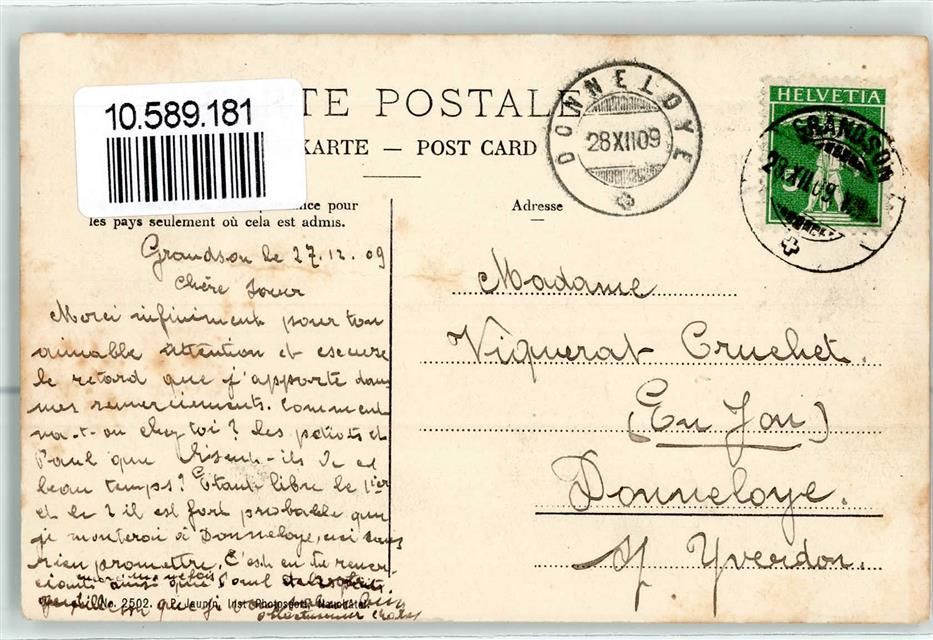 10.589.181
TE POSTALE
KARTE — POST CARD
nce pour
les pays seulement où cela est admis.
Adresse
DONNELOYE
28XII09
HELVETIA
5
GRANDSON
28.XII.09
Grandson le 27.12.09
Chère Soeur
Merci infiniment pour ton
aimable attention et excuse
le retard que j'apporte dans
mes remerciements. Comment
va-t-on chez toi? Les petiots et
Paul que disent-ils de ce
beau temps? Etant libre le 1er
et le 2 il est fort probable que
je monterai à Donneloye, ceci sans
rien promettre. C'est en te remer
ciant ainsi que Paul
que je
Madame
Viquerat Cruchet.
(En Jon)
Donneloye.
s/ Yverdon.
No. 2502. P. Jaunin, Inst. Photogr.